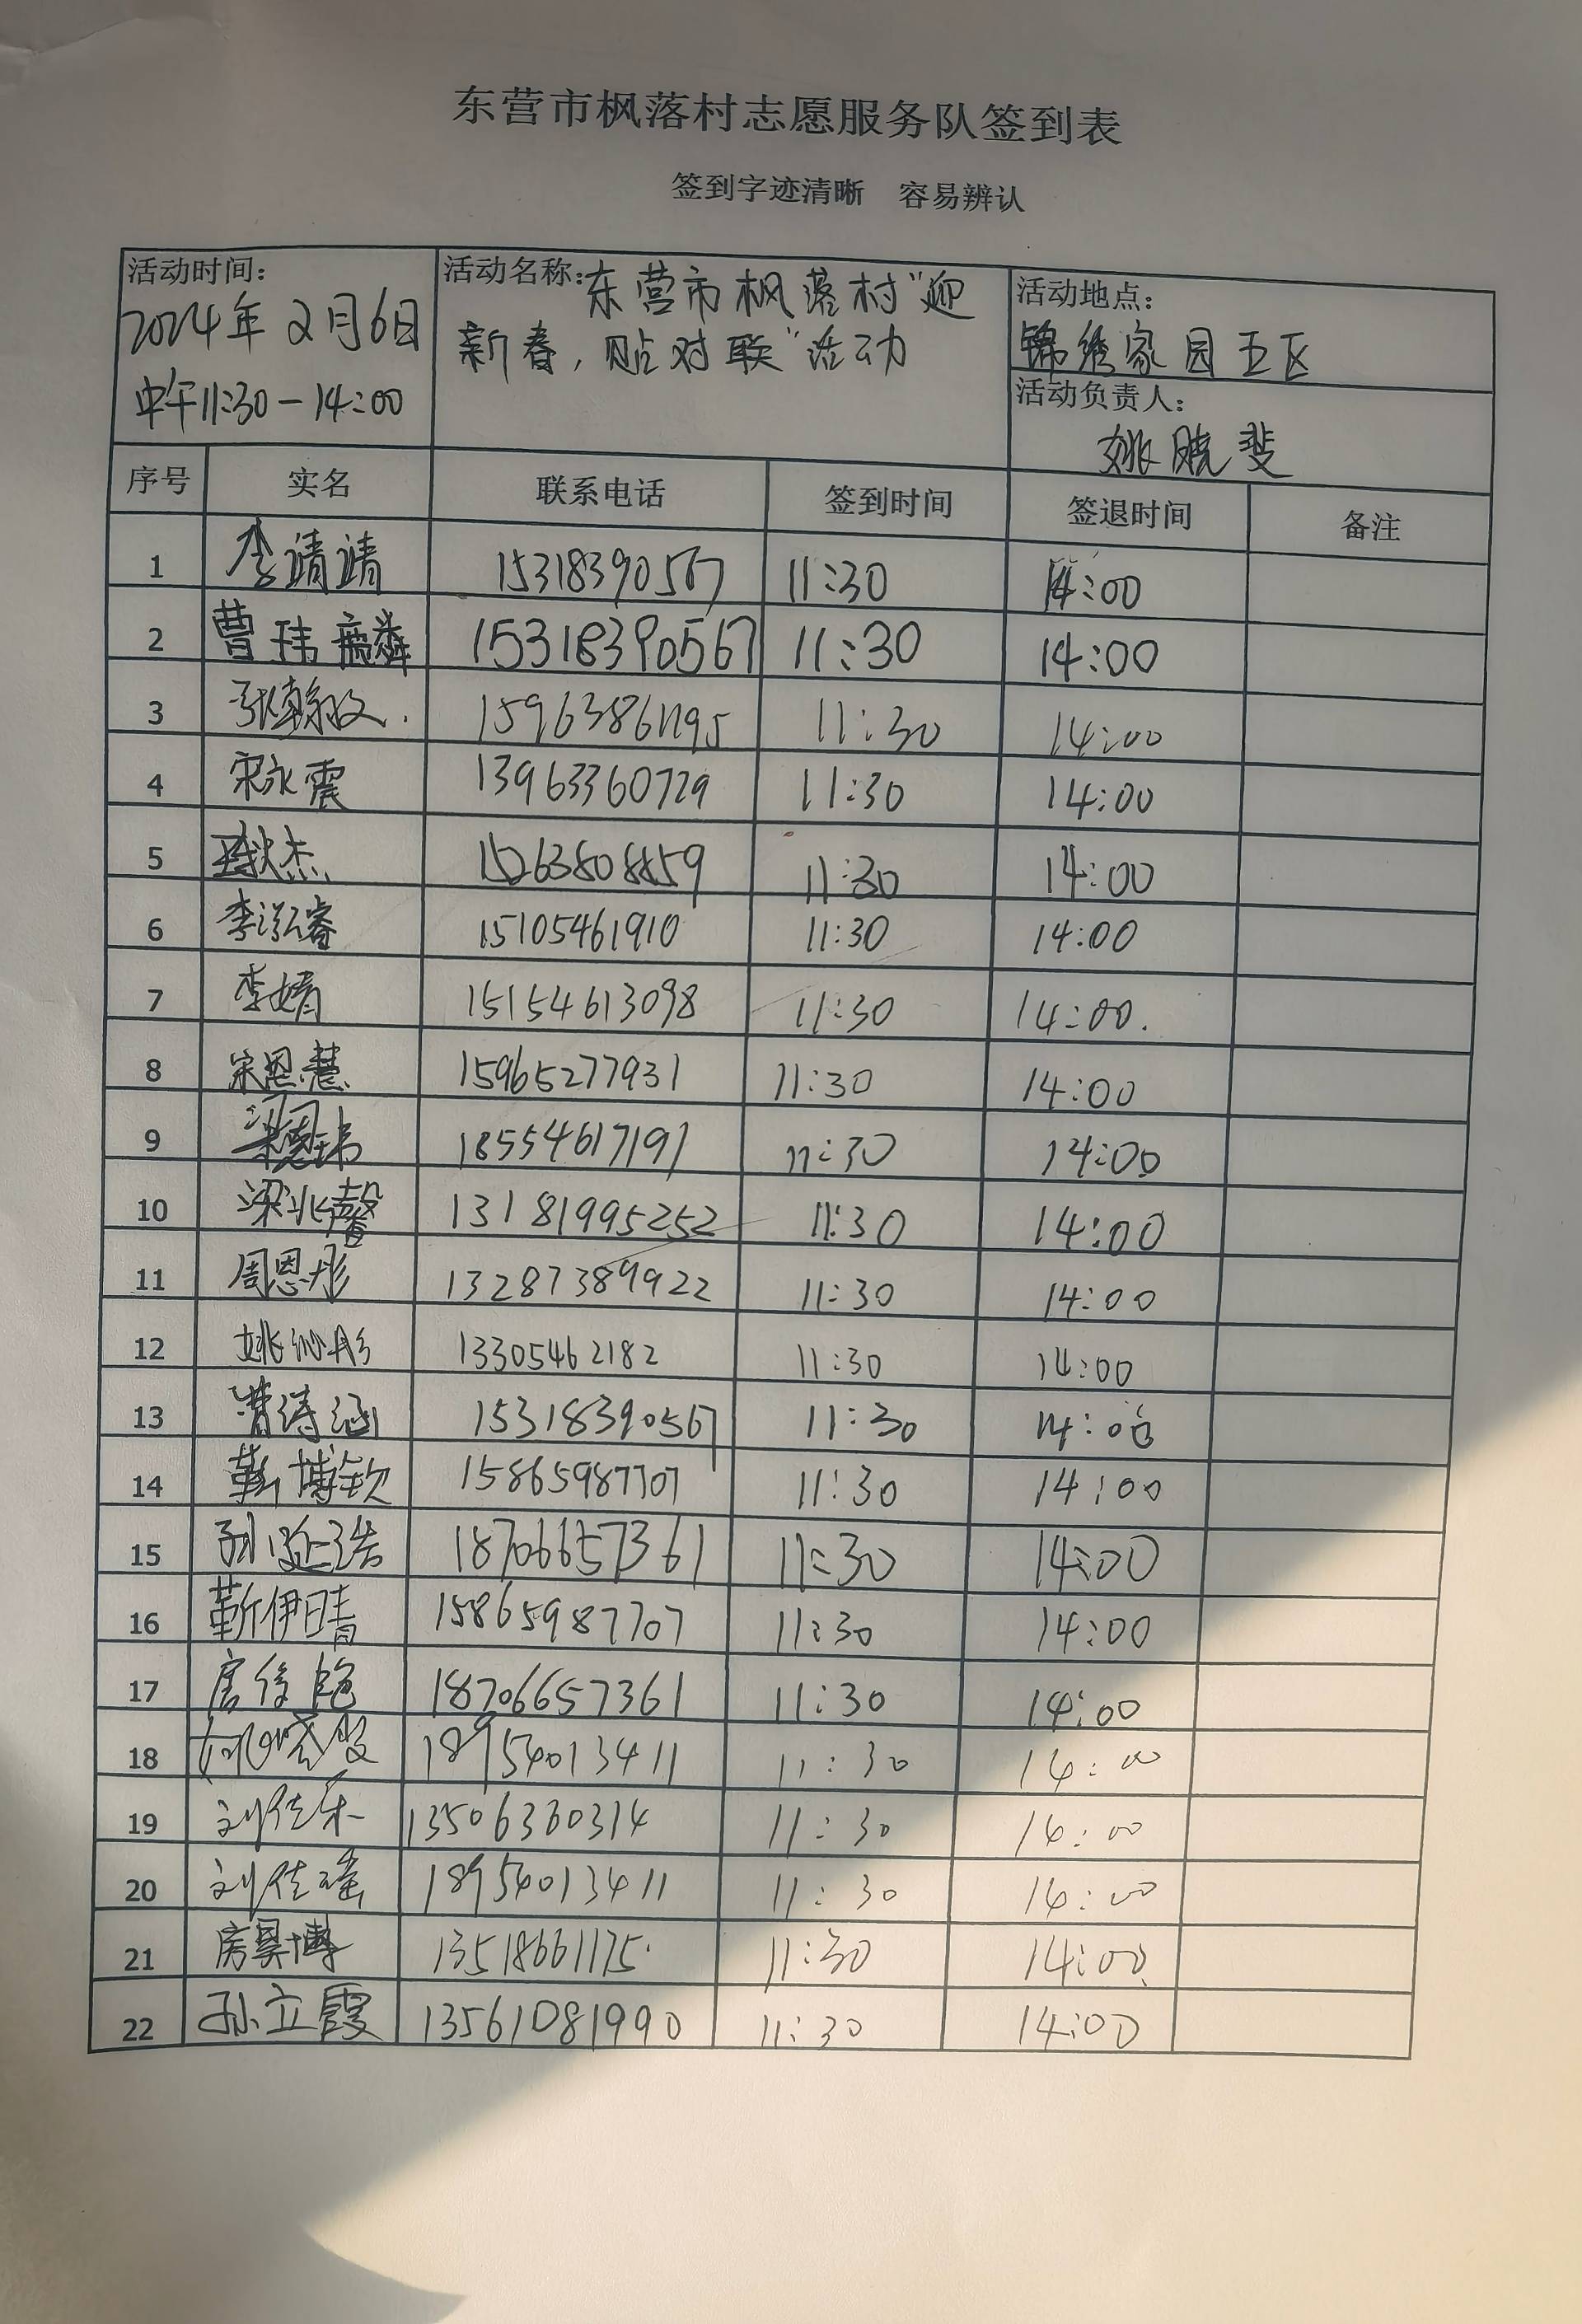 东营市枫落村志愿服务队签到表
签到字迹清晰 容易辨认
活动时间：
2024年2月6日
中午11:30-14:00
活动名称：东营市枫落村“迎
新春，贴对联”活动
活动地点：
锦绣家园五区
活动负责人：
姚晓斐
序号 实名 联系电话 签到时间 签退时间 备注
1 李靖靖 15318390567 11:30 14:00
2 曹玮麟 15318390567 11:30 14:00
3 张翰文 11:30 14:00
4 宋永震 13963360729 11:30 14:00
5 15263808859 11:30 14:00
6 李泓睿 15105461910 11:30 14:00
7 李婧 15154613098 11:30 14:00
8 宋恩慧 15965277931 11:30 14:00
9 梁恩玮 18554617191 11:30 14:00
10 梁兆馨 13181995252 11:30 14:00
11 周恩彤 13287389922 11:30 14:00
12 姚沁彤 13305462182 11:30 14:00
13 曹诗涵 15318390567 11:30 14:00
14 靳博钦 15865987707 11:30 14:00
15 孙延浩 18706657361 11:30 14:00
16 靳伊晴 15865987707 11:30 14:00
17 18706657361 11:30 14:00
18 18954013411 11:30 14:00
19 刘佳乐 13506360314 11:30 14:00
20 刘佳瑶 18954013411 11:30 14:00
21 房昊博 13518661175 11:30 14:00
22 孙立霞 13561081990 11:30 14:00